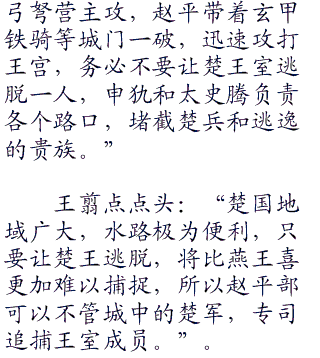 弓弩营主攻，赵平带着玄甲
铁骑等城门一破，迅速攻打
王宫，务必不要让楚王室逃
脱一人，申犰和太史腾负责
各个路口，堵截楚兵和逃逸
的贵族。”
王翦点点头：“楚国地
域广大，水路极为便利，只
要让楚王逃脱，将比燕王喜
更加难以捕捉，所以赵平部
可以不管城中的楚军，专司
追捕王室成员。”。